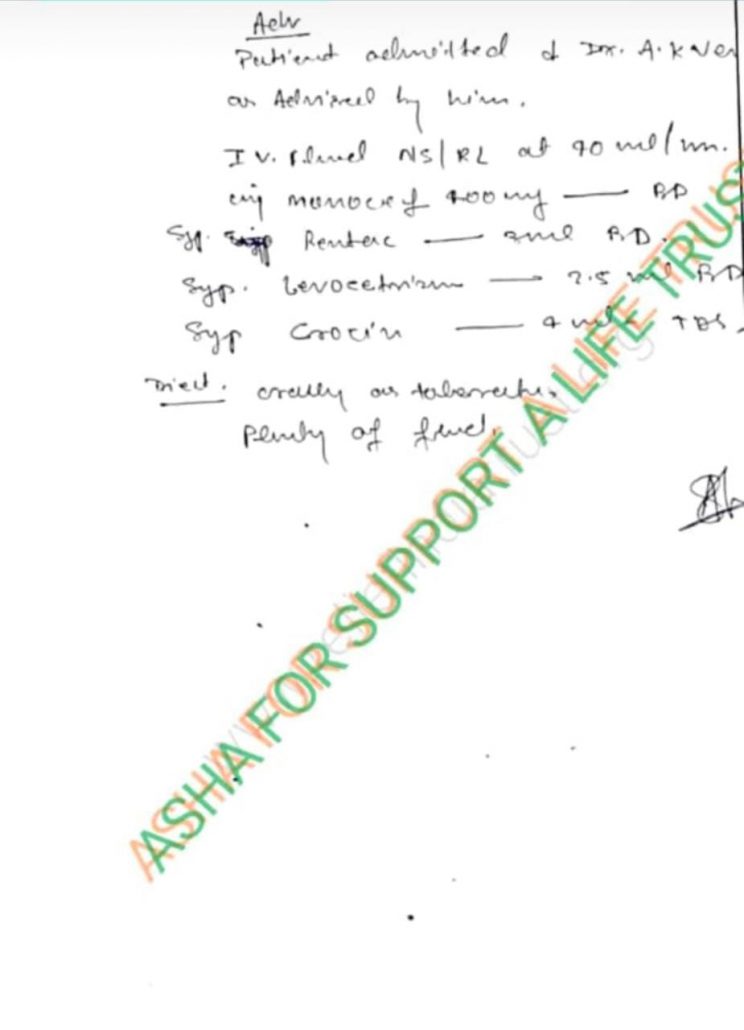 Adv
Patient admitted Dr. A.K Ver
as Advised by him.
I V. fluid NS/RL at 40 ml/hr.
inj monocef 400 mg — BD
Syp. Rentac — 2ml BD.
Syp. Levocetrizm — 2.5 ml BD
Syp Crocin — 4 ml TDS
Diet. orally as tolerate.
Plenty of fluid.
ASHA FOR SUPPORT A LIFE TRUS